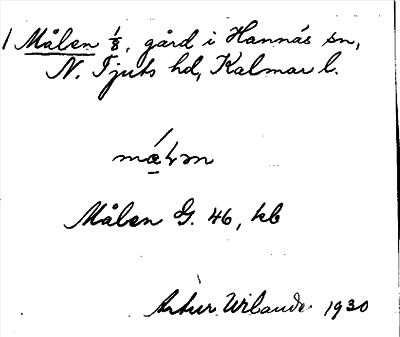 1 Målen 1/8, gård i Hannäs sn,
N. Tjusts hd, Kalmar l.
Målen G. 46, kb
Artur Wilande 1930